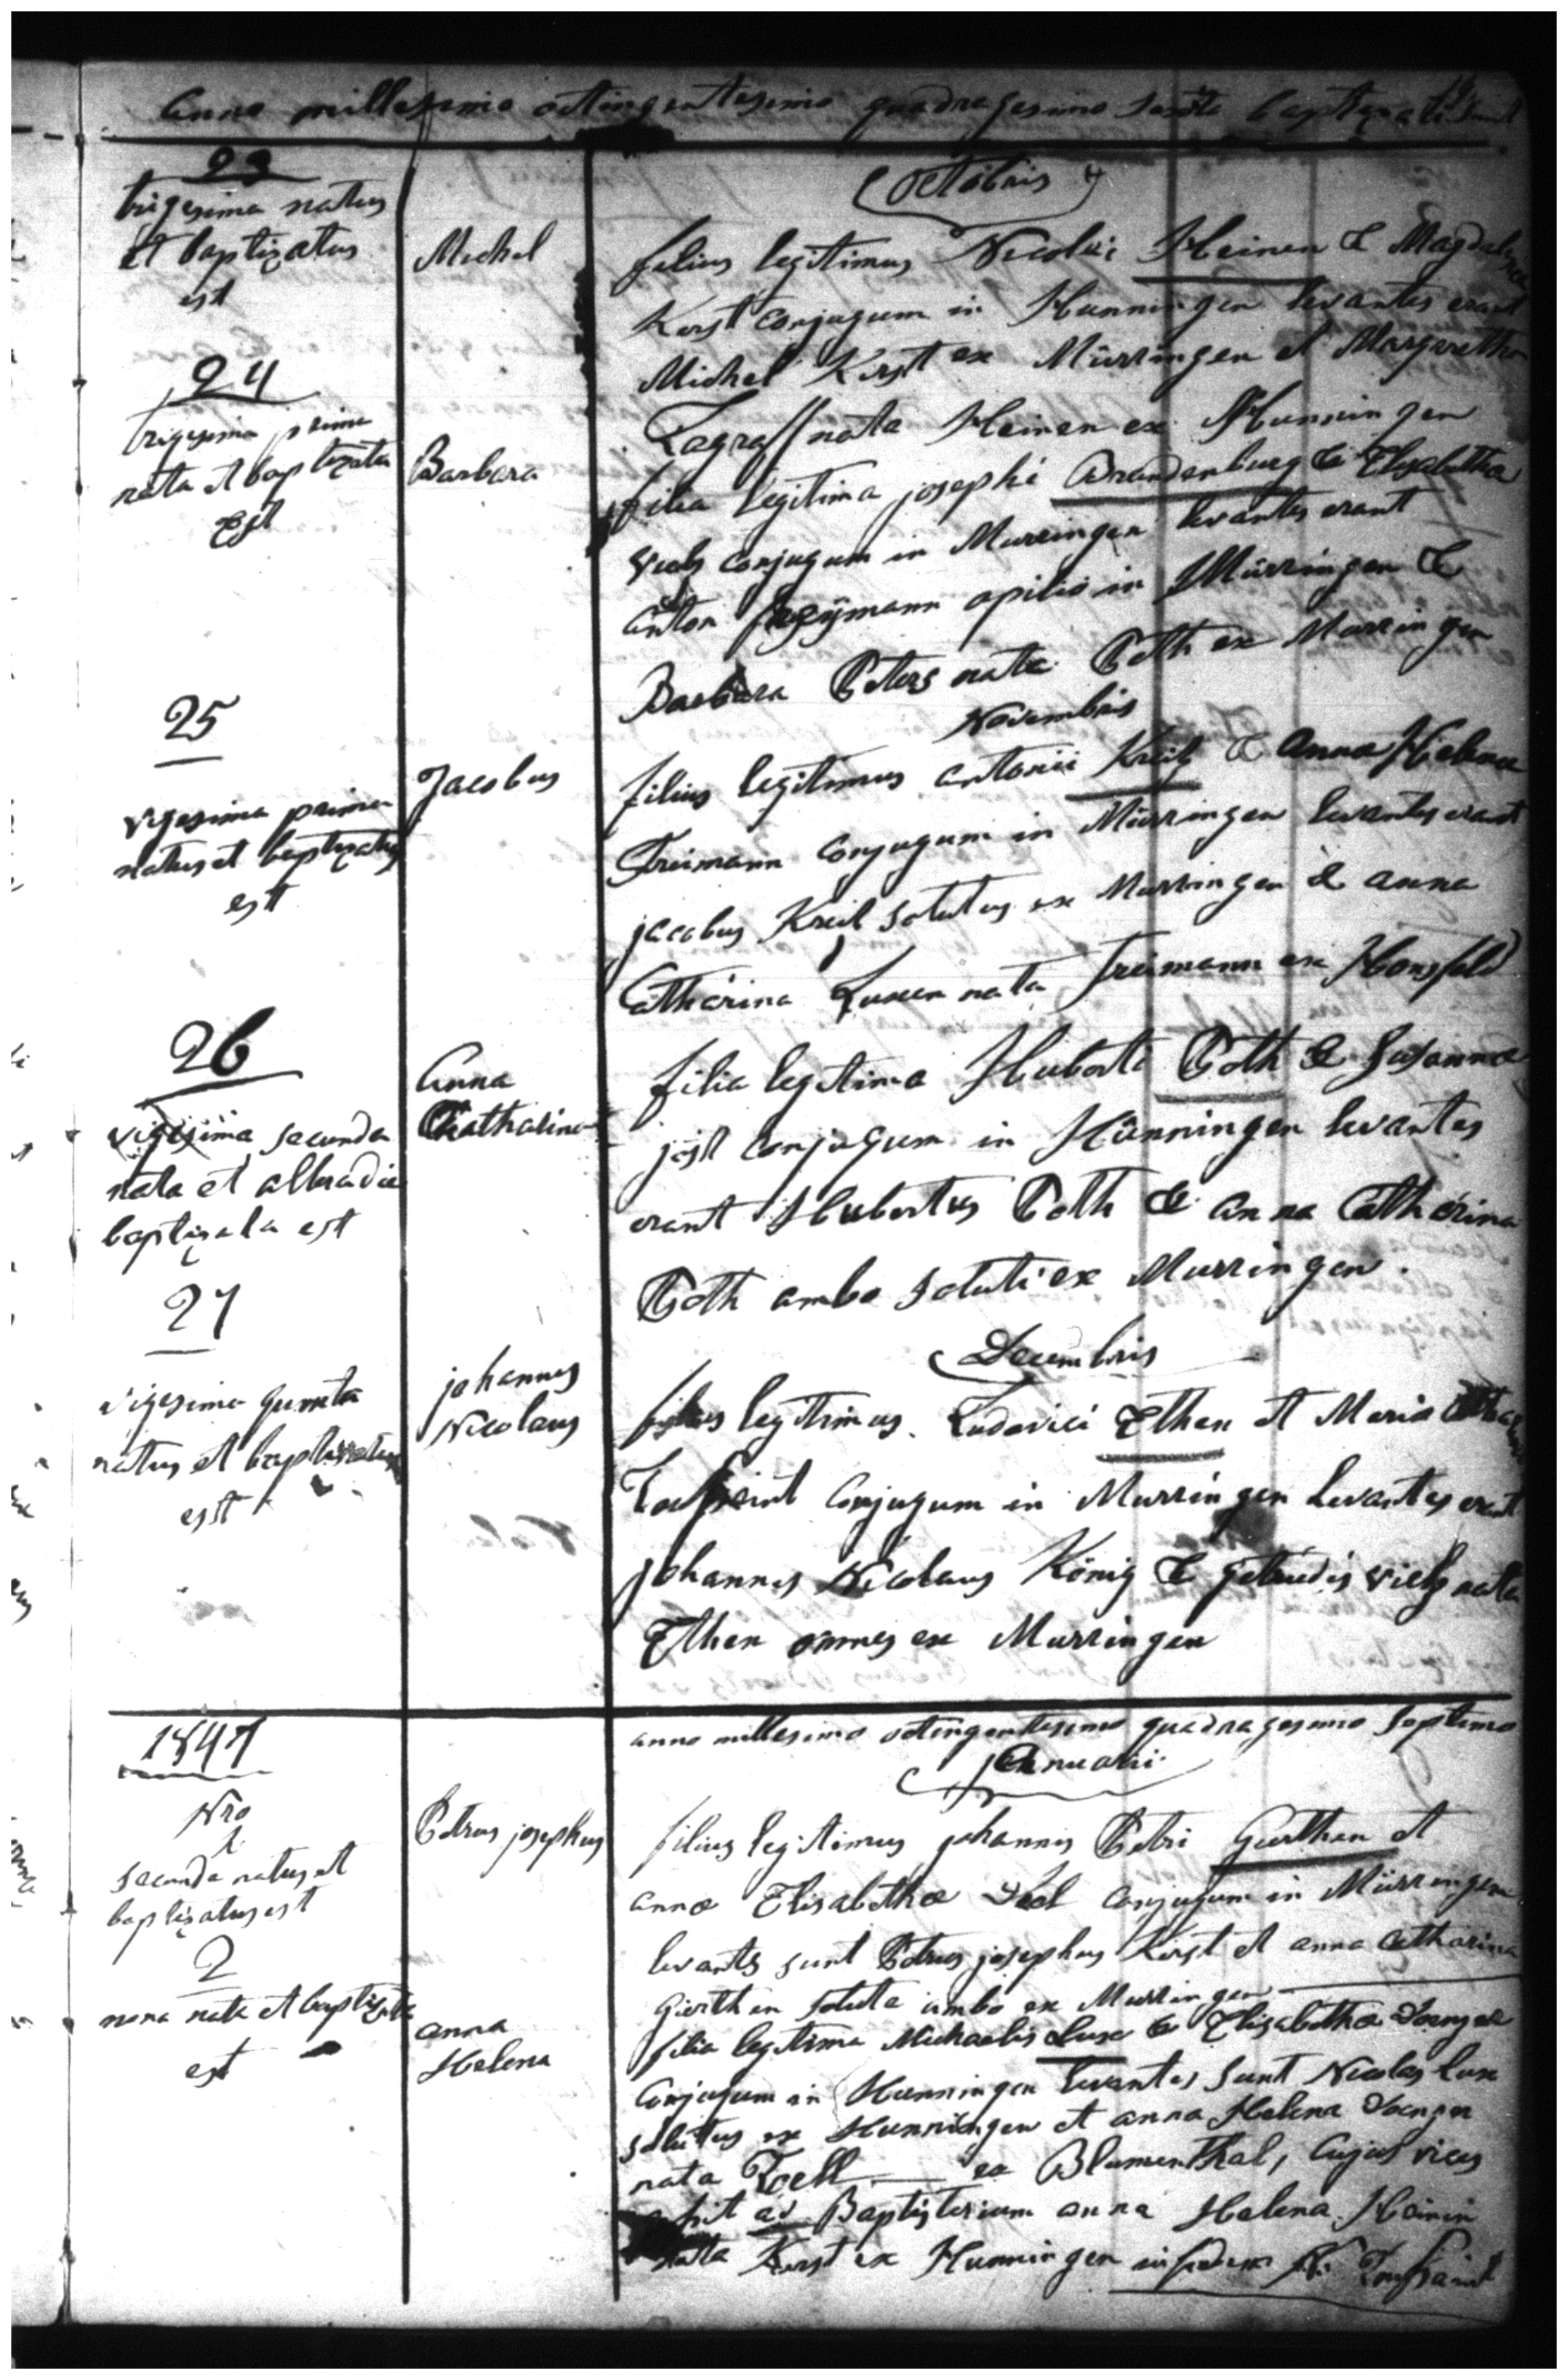 Anno millesimo octingentesimo quadragesimo sexto baptizati sunt
Octobris
23
trigesima natus
et baptizatus
est
Michel
filius legitimus Nicolai Heinen & Magdalena
Kerst conjugum in Hunningen levantes erant
Michel Kerst ex Mürringen et Margaretha
Legraff nata Heinen ex Hunningen
24
trigesima prima
nata et baptizata
Est
Barbara
filia legitima josephi Brandenburg & Elisabetha
Viels conjugum in Murringen levantes erant
Anton opilio in Mürringen &
Barbara Peters nata Poth ex Murringen
Novembris
25
vigesima prima
natus et baptizatus
est
Jacobus
filius legitimus antonii Kreil & Anna Helena
Treimann conjugum in Mürringen levantes erant
jacobus Kreil solutus ex Murringen & anna
Catharina Luxen nata Treimann ex Honsfeld
26
vigesima secunda
nata et altera die
baptizata est
Anna
Chatharina
filia legitima Huberti Poth & Susanna
jost conjugum in Hünningen levantes
erant Hubertus Poth & anna Catharina
Poth ambo soluti ex Murringen.
Decembris
27
vigesima quinta
natus et baptizatus
est
johannes
Nicolaus
filius legitimus Ludovici Ethen et Maria
Toussaint conjugum in Murringen levantes erant
johannes Nicolaus König & getrudis Viels nata
Ethen omnes ex Murringen
1847
anno millesimo octingentesimo quadragesimo septimo
januarii
Nro
1
secunda natus et
baptizatus est
Petrus josephus
filius legitimus johannis Petri Gierthen et
anna Elisabetha conjugum in Mürringen
levantes sunt Petrus josephus Kerst et anna Catharina
Gierthen soluta ambo ex Murringen
2
nona nata et baptizata
est
anna
Helena
filia legitima Michaelis Lux & Elisabetha
Conjugum in Hunningen levantes sunt Nicolas Lux
solutus ex Hunningen et anna Helena
nata ex Blumenthal, cujus vices
ad Baptisterium anna Helena Heinen
nata Kerst ex Hunningen Toussaint